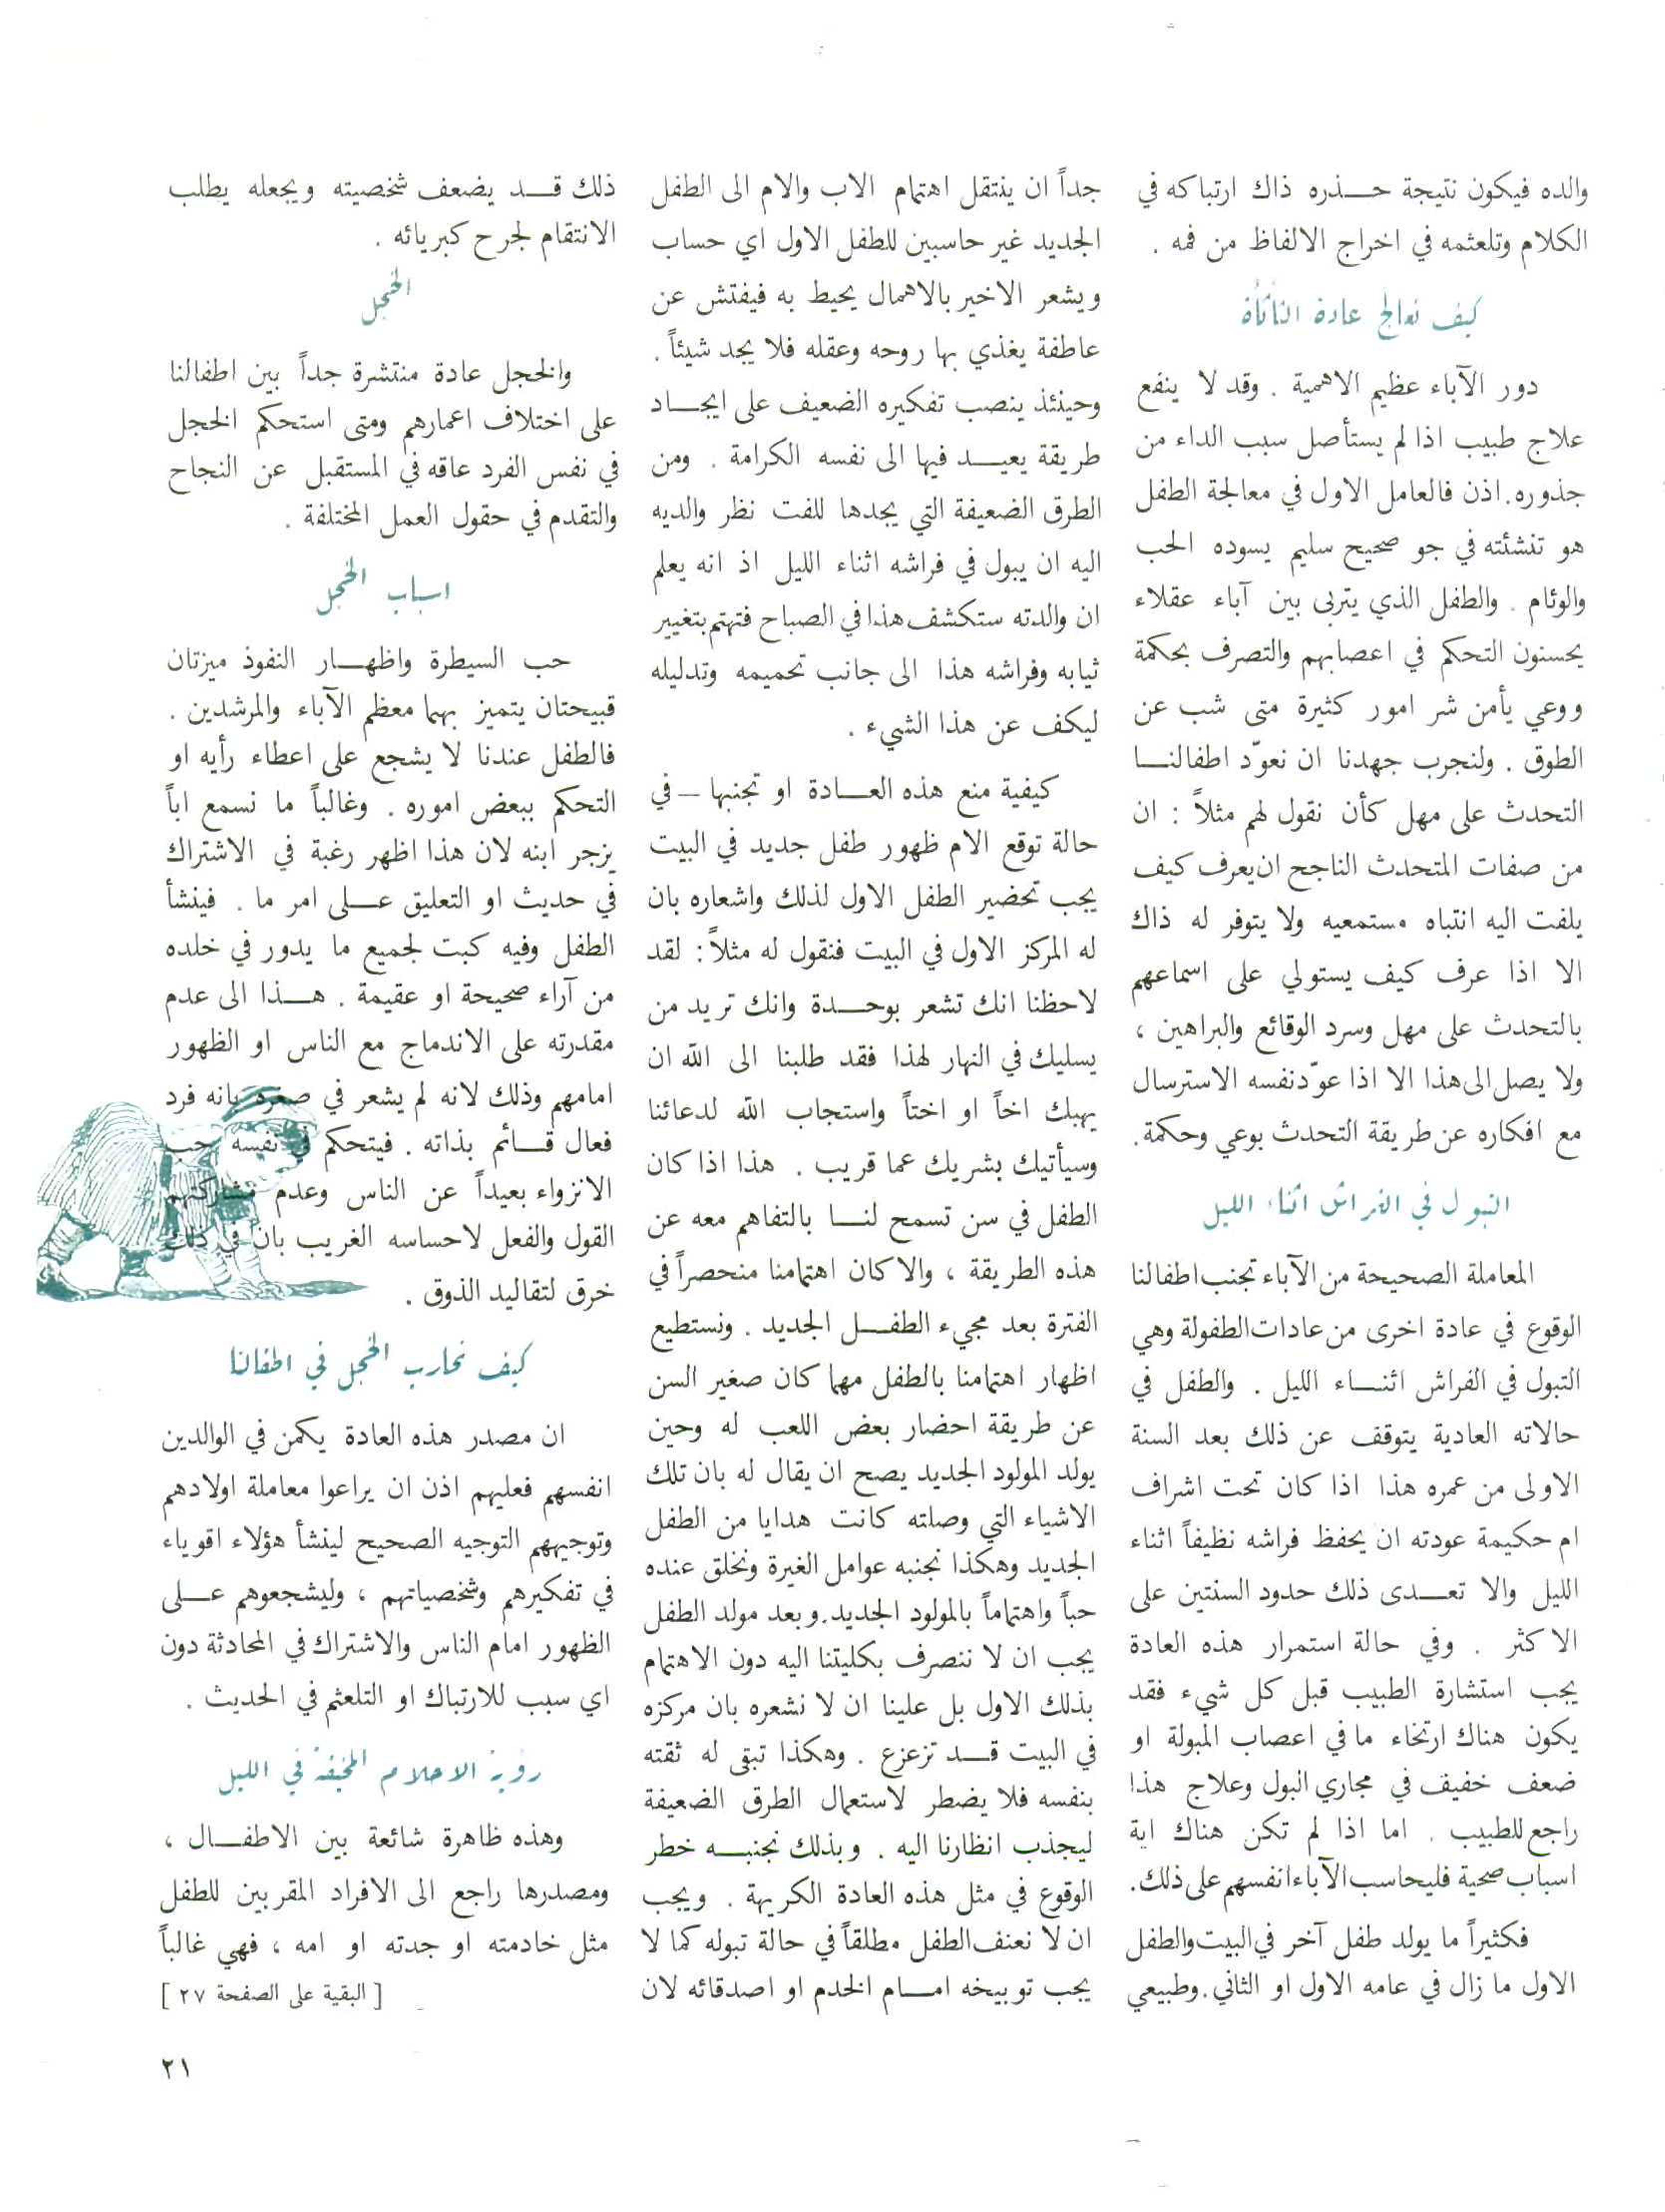 والده فيكون نتيجة حـــذره ذاك ارتباكه في
الكلام وتلعثمه في اخراج الالفاظ من فمه .
كيف نعالج عادة التأتأة
دور الآباء عظيم الاهمية . وقد لا ينفع
علاج طبيب اذا لم يستأصل سبب الداء من
جذوره. اذن فالعامل الاول في معالجة الطفل
هو تنشئته في جو صحيح سليم يسوده الحب
والوئام . والطفل الذي يتربى بين آباء عقلاء
يحسنون التحكم في اعصابهم والتصرف بحكمة
ووعي يأمن شر امور كثيرة متى شب عن
الطوق . ولنجرب جهدنا ان نعوّد اطفالنـــا
التحدث على مهل كأن نقول لهم مثلاً : ان
من صفات المتحدث الناجح ان يعرف كيف
يلفت اليه انتباه مستمعيه ولا يتوفر له ذاك
الا اذا عرف كيف يستولي على اسماعهم
بالتحدث على مهل وسرد الوقائع والبراهين ،
ولا يصل الى هذا الا اذا عوّد نفسه الاسترسال
مع افكاره عن طريقة التحدث بوعي وحكمة.
التبول في الفراش اثناء الليل
المعاملة الصحيحة من الآباء تجنب اطفالنا
الوقوع في عادة اخرى من عادات الطفولة وهي
التبول في الفراش اثنـــاء الليل . والطفل في
حالاته العادية يتوقف عن ذلك بعد السنة
الاولى من عمره هذا اذا كان تحت اشراف
ام حكيمة عودته ان يحفظ فراشه نظيفاً اثناء
الليل والا تعـــدى ذلك حدود السنتين على
الاكثر . وفي حالة استمرار هذه العادة
يجب استشارة الطبيب قبل كل شيء فقد
يكون هناك ارتخاء ما في اعصاب المبولة او
ضعف خفيف في مجاري البول وعلاج هذا
راجع للطبيب . اما اذا لم تكن هناك اية
اسباب صحية فليحاسب الآباء انفسهم على ذلك.
فكثيراً ما يولد طفل آخر في البيت والطفل
الاول ما زال في عامه الاول او الثاني. وطبيعي
جداً ان ينتقل اهتمام الاب والام الى الطفل
الجديد غير حاسبين للطفل الاول اي حساب
ويشعر الاخير بالاهمال يحيط به فيفتش عن
عاطفة يغذي بها روحه وعقله فلا يجد شيئاً .
وحينئذ ينصب تفكيره الضعيف على ايجـــاد
طريقة يعيـــد فيها الى نفسه الكرامة . ومن
الطرق الضعيفة التي يجدها للفت نظر والديه
اليه ان يبول في فراشه اثناء الليل اذ انه يعلم
ان والدته ستكشف هذا في الصباح فتهتم بتغيير
ثيابه وفراشه هذا الى جانب تحميمه وتدليله
ليكف عن هذا الشيء .
كيفية منع هذه العـــادة او تجنبها — في
حالة توقع الام ظهور طفل جديد في البيت
يجب تحضير الطفل الاول لذلك واشعاره بان
له المركز الاول في البيت فنقول له مثلاً : لقد
لاحظنا انك تشعر بوحـــدة وانك تريد من
يسليك في النهار لهذا فقد طلبنا الى الله ان
يهبك اخاً او اختاً واستجاب الله لدعائنا
وسيأتيك بشريك عما قريب . هذا اذا كان
الطفل في سن تسمح لنـــا بالتفاهم معه عن
هذه الطريقة ، والا كان اهتمامنا منحصراً في
الفترة بعد مجيء الطفـــل الجديد . ونستطيع
اظهار اهتمامنا بالطفل مهما كان صغير السن
عن طريقة احضار بعض اللعب له وحين
يولد المولود الجديد يصح ان يقال له بان تلك
الاشياء التي وصلته كانت هدايا من الطفل
الجديد وهكذا نجنبه عوامل الغيرة ونخلق عنده
حباً واهتماماً بالمولود الجديد. وبعد مولد الطفل
يجب ان لا ننصرف بكليتنا اليه دون الاهتمام
بذلك الاول بل علينا ان لا نشعره بان مركزه
في البيت قـــد تزعزع . وهكذا تبقى له ثقته
بنفسه فلا يضطر لاستعمال الطرق الضعيفة
ليجذب انظارنا اليه . وبذلك نجنبـــه خطر
الوقوع في مثل هذه العادة الكريهة . ويجب
ان لا نعنف الطفل مطلقاً في حالة تبوله كما لا
يجب توبيخه امـــام الخدم او اصدقائه لان
ذلك قـــد يضعف شخصيته ويجعله يطلب
الانتقام لجرح كبريائه .
الخجل
والخجل عادة منتشرة جداً بين اطفالنا
على اختلاف اعمارهم ومتى استحكم الخجل
في نفس الفرد عاقه في المستقبل عن النجاح
والتقدم في حقول العمل المختلفة .
اسباب الخجل
حب السيطرة واظهـــار النفوذ ميزتان
قبيحتان يتميز بهما معظم الآباء والمرشدين .
فالطفل عندنا لا يشجع على اعطاء رأيه او
التحكم ببعض اموره . وغالباً ما نسمع اباً
يزجر ابنه لان هذا اظهر رغبة في الاشتراك
في حديث او التعليق عـــلى امر ما . فينشأ
الطفل وفيه كبت لجميع ما يدور في خلده
من آراء صحيحة او عقيمة . هـــذا الى عدم
مقدرته على الاندماج مع الناس او الظهور
امامهم وذلك لانه لم يشعر في صغره بانه فرد
فعال قـــائم بذاته . فيتحكم في نفسه حب
الانزواء بعيداً عن الناس وعدم مشاركتهم
القول والفعل لاحساسه الغريب بان في ذلك
خرق لتقاليد الذوق .
كيف نحارب الخجل في اطفالنا
ان مصدر هذه العادة يكمن في الوالدين
انفسهم فعليهم اذن ان يراعوا معاملة اولادهم
وتوجيههم التوجيه الصحيح لينشأ هؤلاء اقوياء
في تفكيرهم وشخصياتهم ، وليشجعوهم عـــلى
الظهور امام الناس والاشتراك في المحادثة دون
اي سبب للارتباك او التلعثم في الحديث .
رؤية الاحلام المخيفة في الليل
وهذه ظاهرة شائعة بين الاطفـــال ،
ومصدرها راجع الى الافراد المقربين للطفل
مثل خادمته او جدته او امه ، فهي غالباً
[ البقية على الصفحة ٢٧ ]
٢١